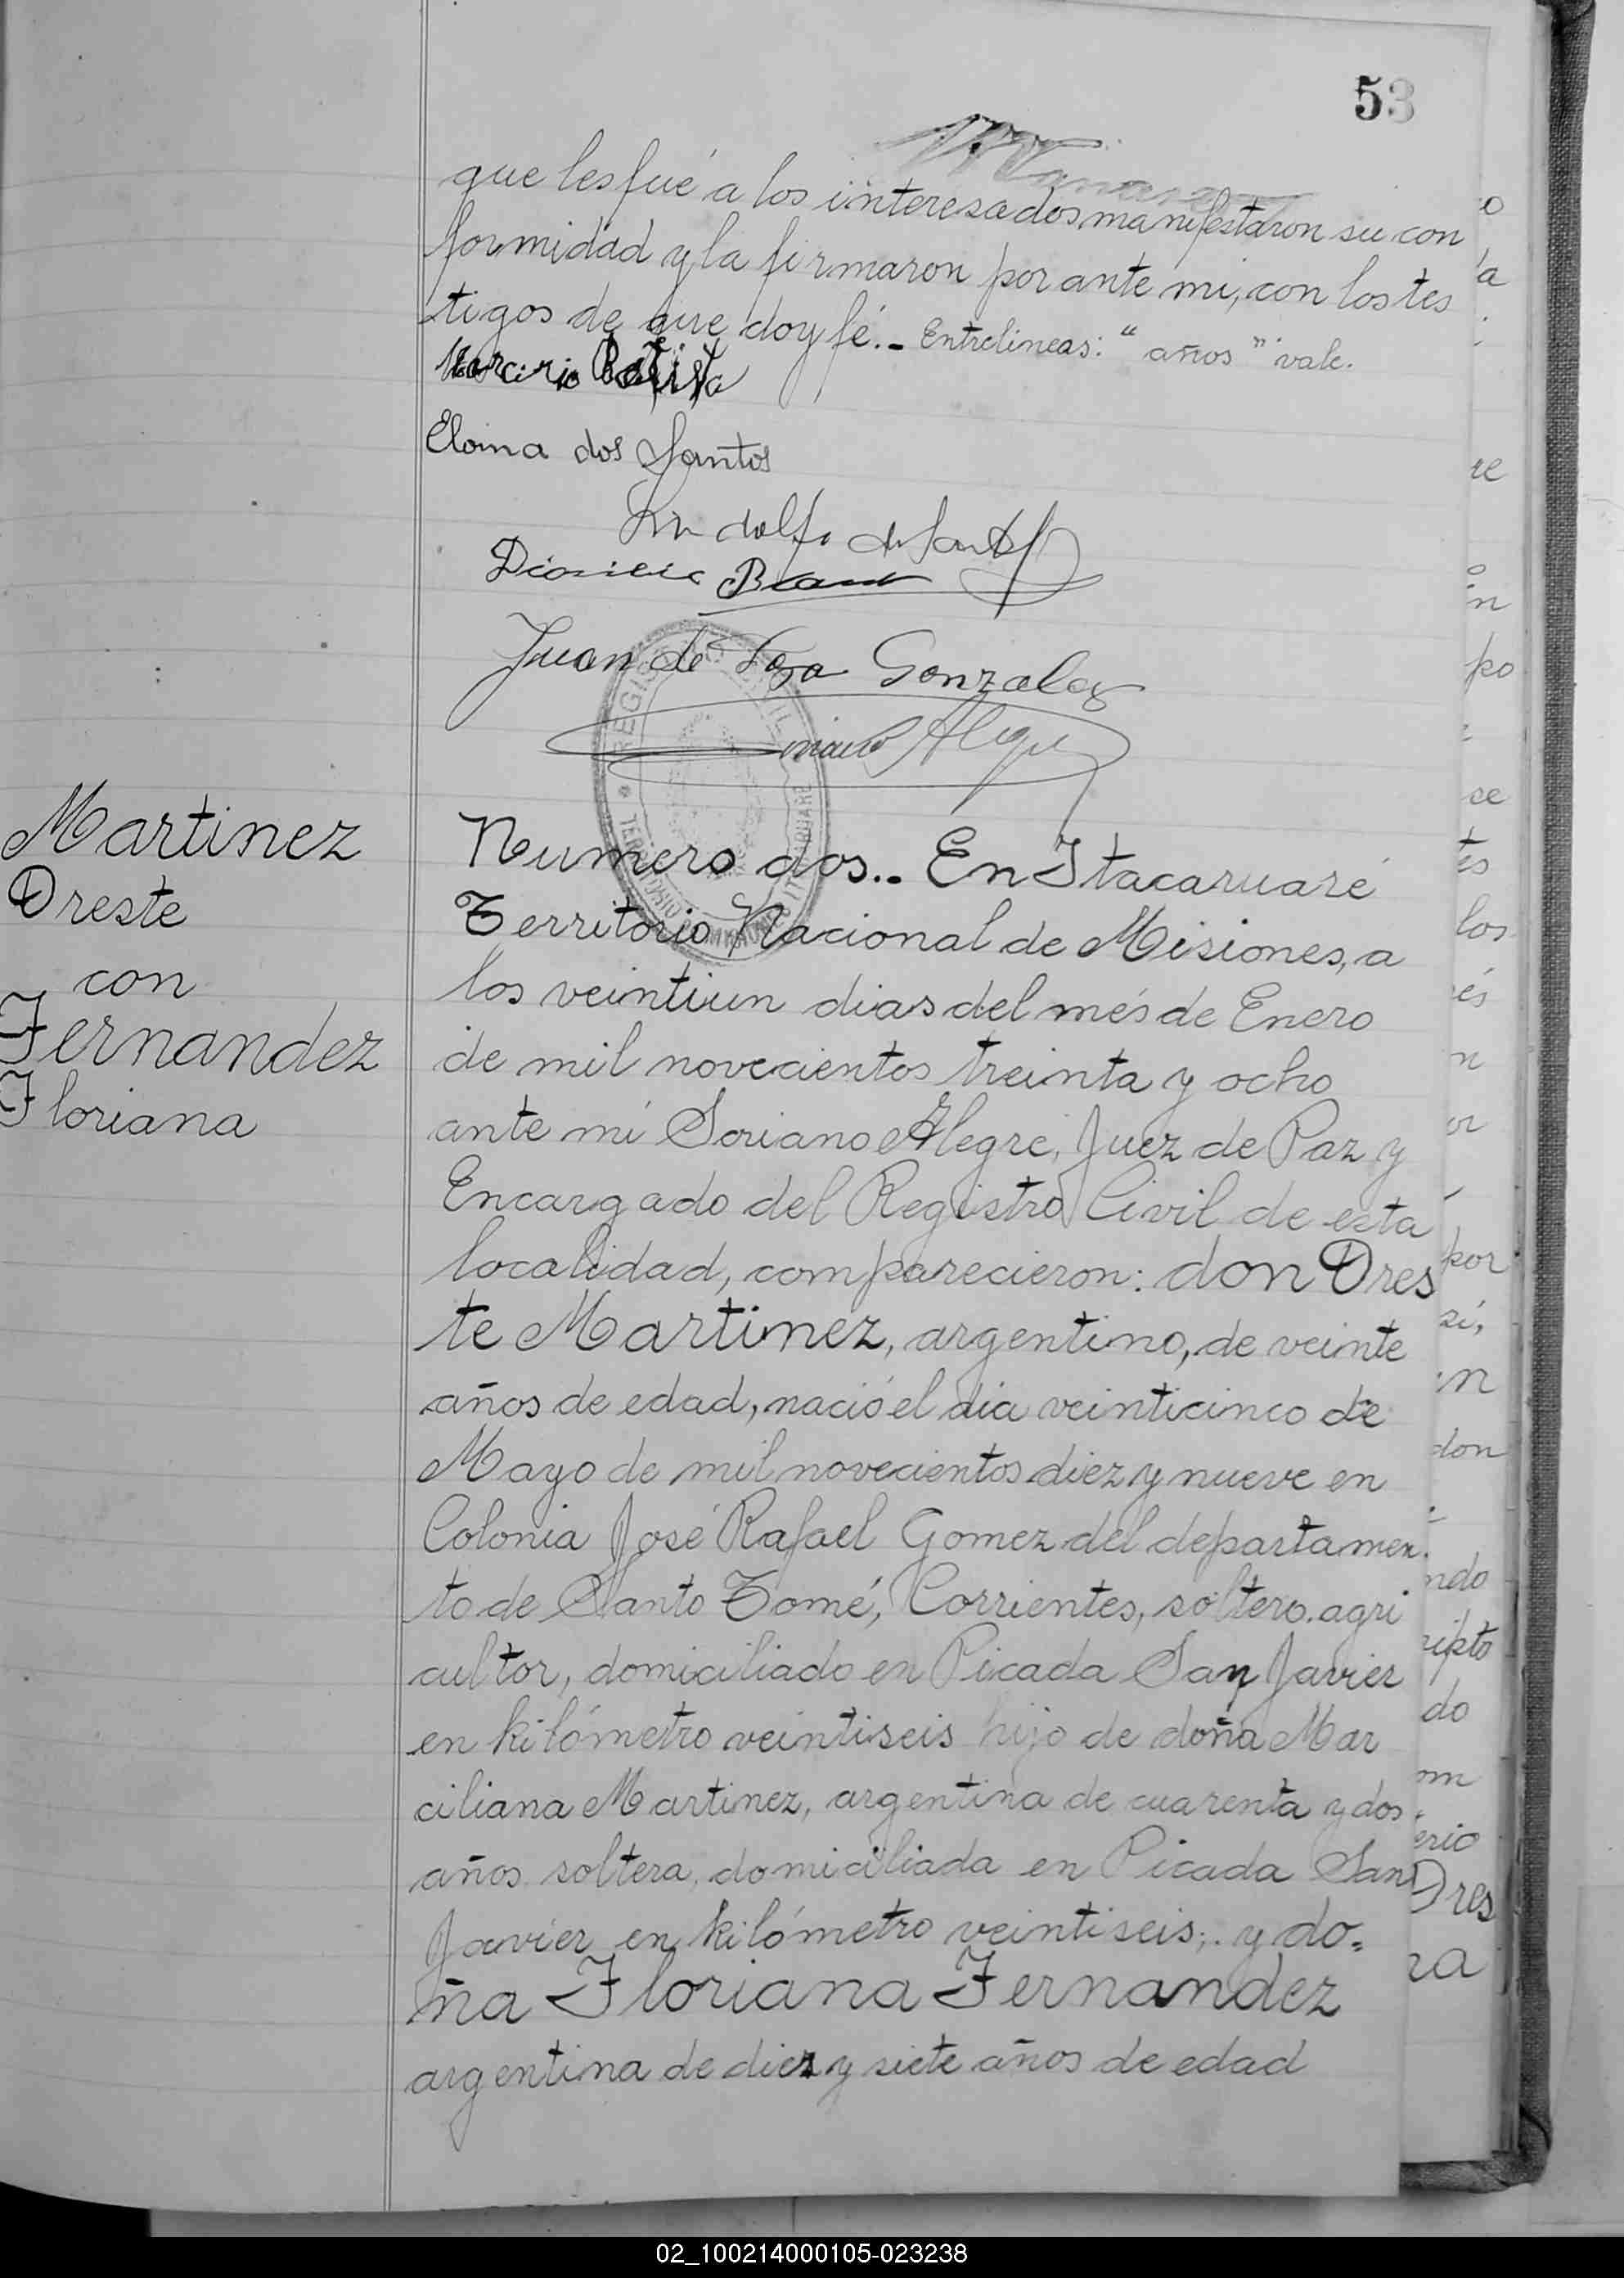 53
que les fué a los interesados manifestaron su con
formidad y la firmaron por ante mi, con los tes
tigos de que doy fé.- Entrelineas: "años" vale.
Eloina dos Santos
Juan de Gonzalez
Alegre
REGISTRO CIVIL
Martinez
Oreste
con
Fernandez
Floriana
Numero dos.- En Itacaruaré
Territorio Nacional de Misiones, a
los veintiun dias del més de Enero
de mil novecientos treinta y ocho
ante mi Soriano Alegre, Juez de Paz y
Encargado del Registro Civil de esta
localidad, comparecieron: don Ores
te Martinez, argentino, de veinte
años de edad, nació el dia veinticinco de
Mayo de mil novecientos diez y nueve en
Colonia José Rafael Gomez del departamen
to de Santo Tomé, Corrientes, soltero, agri
cultor, domiciliado en Picada San Javier
en kilómetro veintiseis hijo de doña Mar
ciliana Martinez, argentina de cuarenta y dos
años soltera, domiciliada en Picada San
Javier en kilómetro veintiseis; y do=
ña Floriana Fernandez
argentina de diez y siete años de edad
02_100214000105-023238